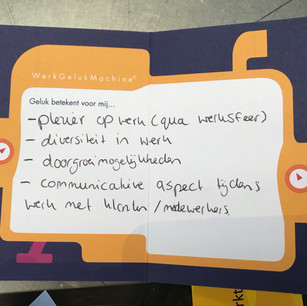 WerkGelukMachine®
Geluk betekent voor mij...
- plezier op werk (qua werksfeer)
- diversiteit in werk
- doorgroeimogelijkheden
- communicatieve aspect tijdens
werk met klanten / medewerkers